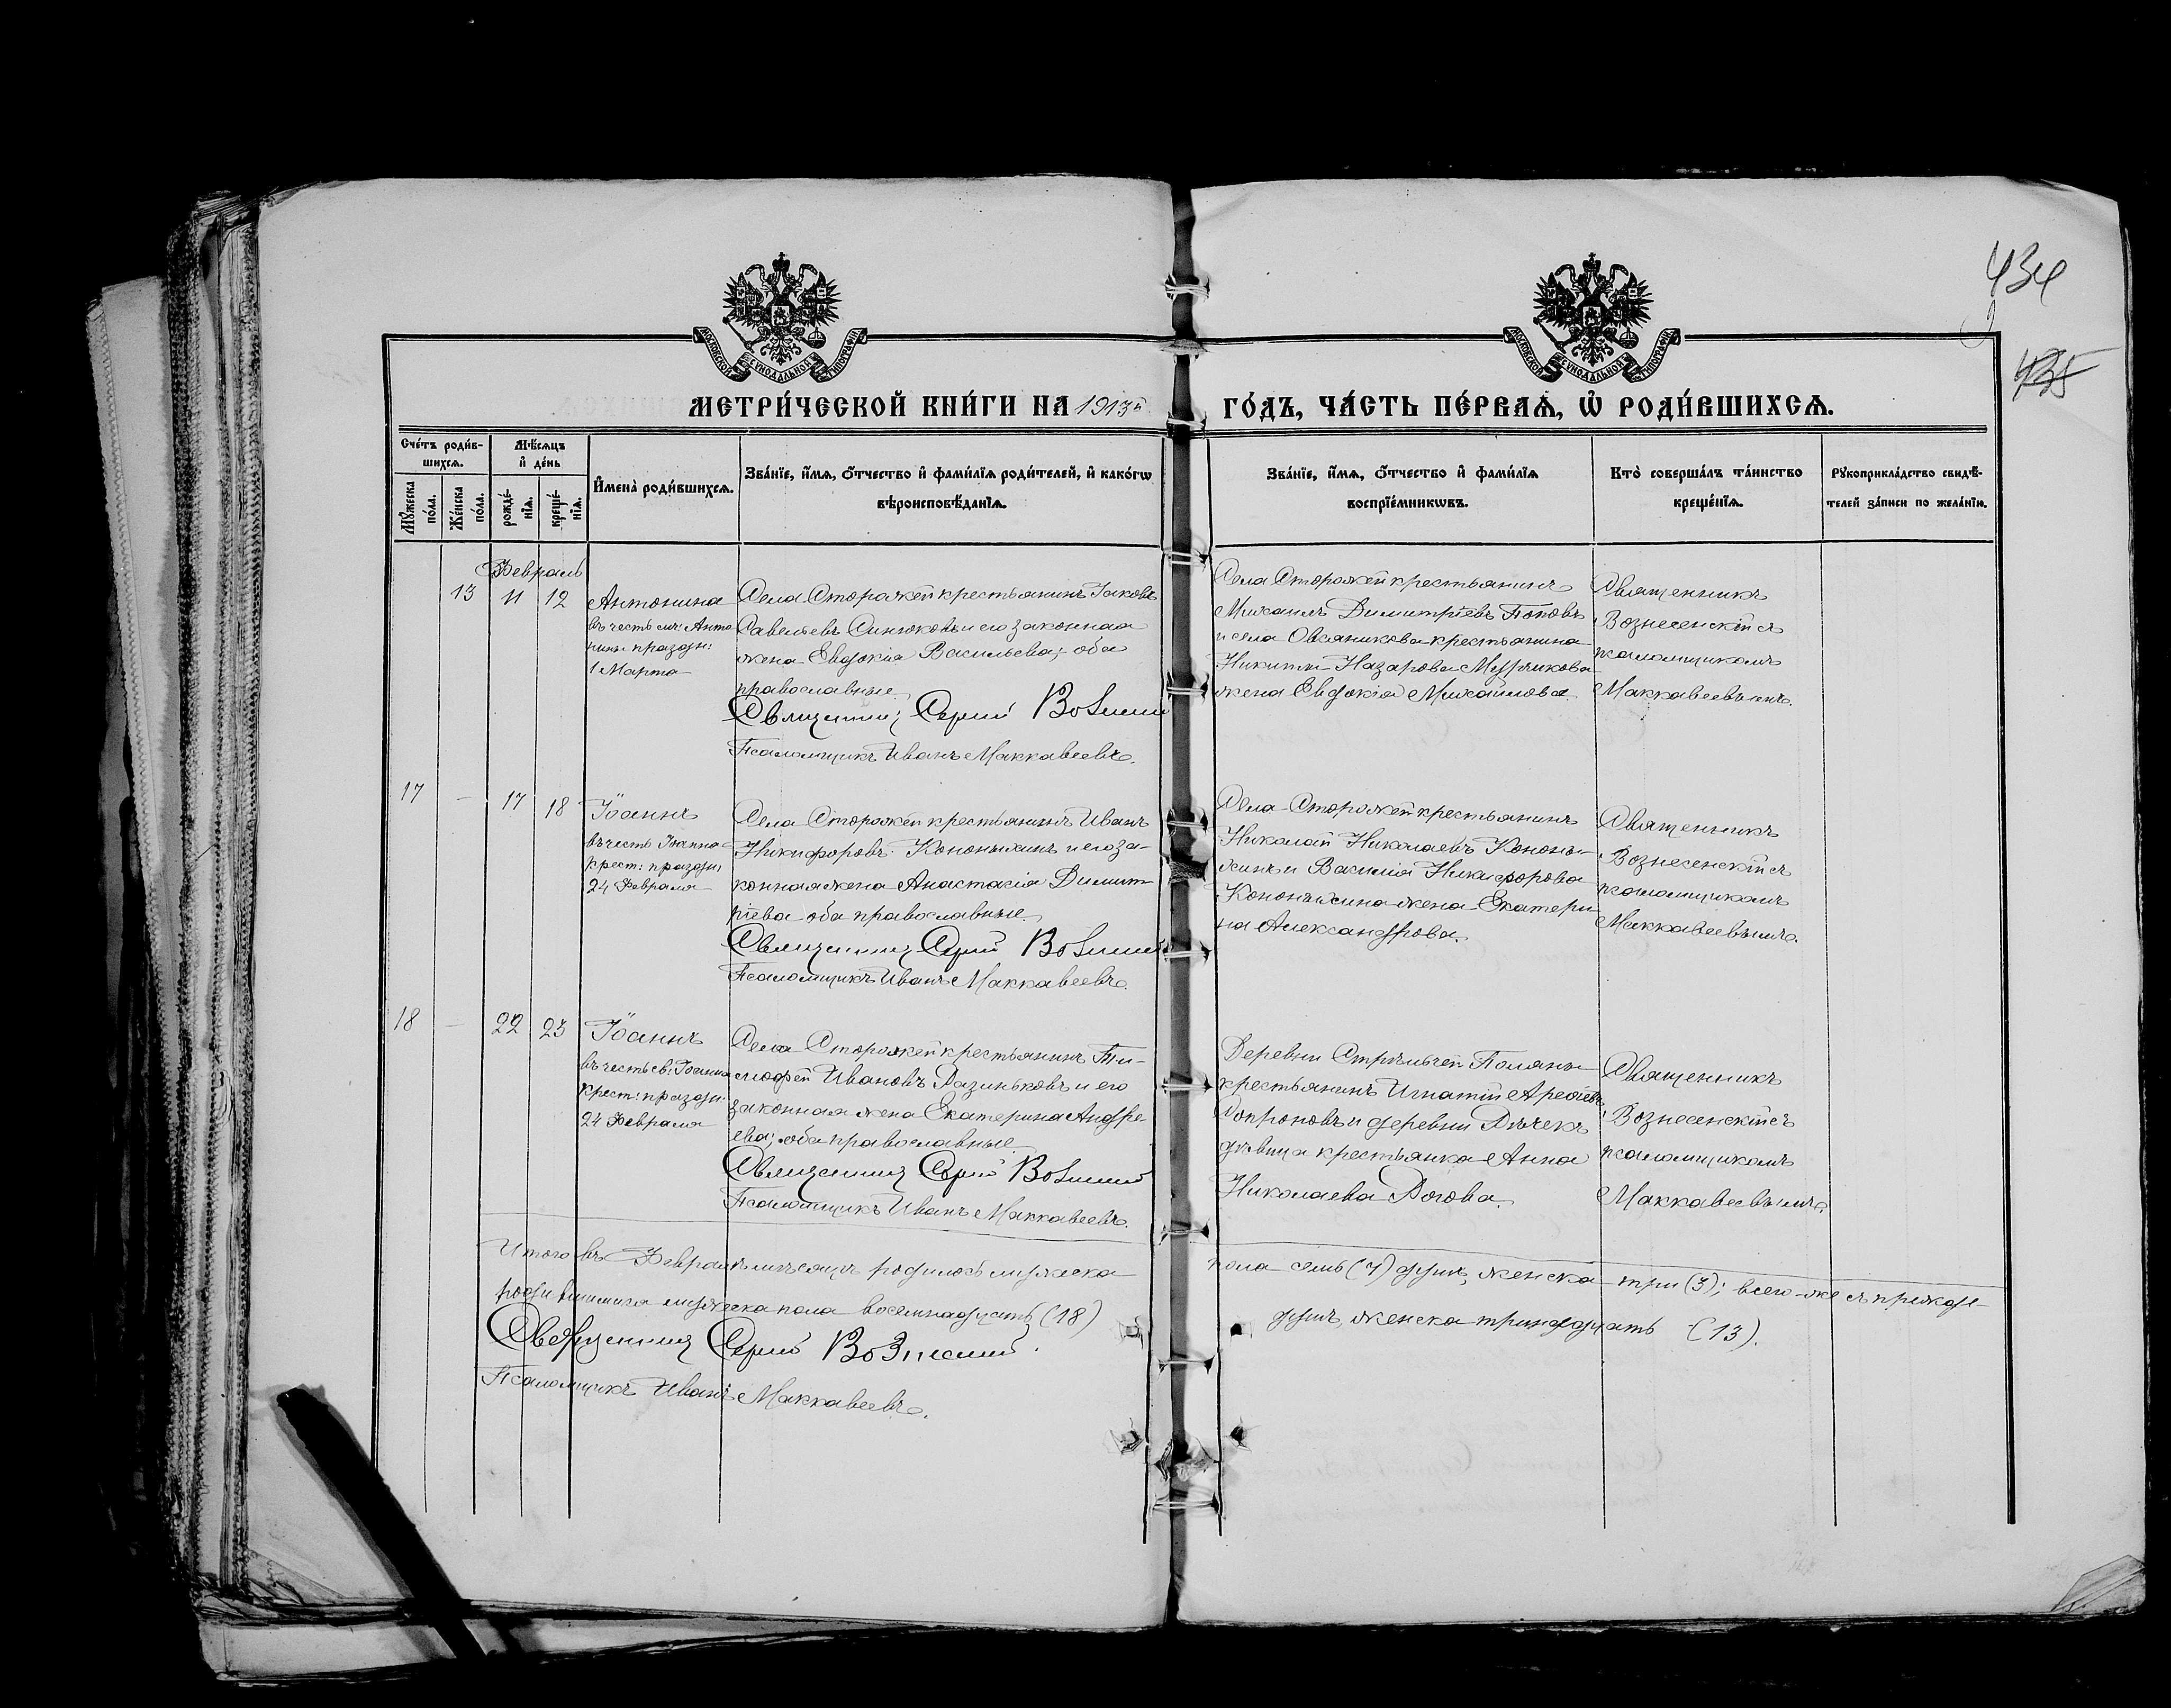 434
435
МОСКОВСКОЙ СѴНОДАЛЬНОЙ ТИПОГРАФІИ
МОСКОВСКОЙ СѴНОДАЛЬНОЙ ТИПОГРАФІИ
МЕТРИ́ЧЕСКОЙ КНИ́ГИ НА 1913й
ГО́ДЪ, ЧА́СТЬ ПЕ́РВАѦ, Ѡ҆ РОДИ́ВШИХСѦ.
Сче́тъ роди́в-
шихсѧ.
Мѣ́сѧцъ
и҆ де́нь
Му́жеска по́ла.
Же́нска по́ла.
рожде́-
нїѧ.
креще́-
нїѧ.
И҆мена̀ роди́вшихсѧ.
Зва́нїе, и҆́мѧ, ѻ҆́тчество и҆ фами́лїѧ роди́телей, и҆ како́гѡ
вѣроисповѣ́данїѧ.
Зва́нїе, и҆́мѧ, ѻ҆́тчество и҆ фами́лїѧ
воспрїе́мникѡвъ.
Кто̀ соверша́лъ та́инство
креще́нїѧ.
Рꙋкоприкла́дство свидѣ́-
телей за́писи по жела́нїю.
Февраль
13 11 12
Антонина
въ честь мч: Анто
нины праздн:
1 Марта
Села Сторожей крестьянинъ Іаковъ
Савельевъ Синюковъ и его законная
жена Евдокія Васильева; оба
православные
Священникъ Сергій Вознесенскій
Псаломщикъ Иванъ Маккавеевъ.
Села Сторожей крестьянинъ
Михаилъ Димитріевъ Поповъ
и села Овсяникова крестьянина
Никиты Назарова
жена Евдокія Михайлова
Священникъ
Вознесенскій съ
псаломщикомъ
Маккавеевымъ.
17 — 17 18
Іоаннъ
въ честь Іоанна
крест: праздн:
24 Февраля
Села Сторожей крестьянинъ Иванъ
Никифоровъ Кононыхинъ и его за-
конная жена Анастасія Димит-
ріева оба православные
Священникъ Сергій Вознесенскій
Псаломщикъ Иванъ Маккавеевъ.
Села Сторожей крестьянинъ
Николай Николаевъ Кононы-
хинъ и Василія Никифорова
Кононыхина жена Екатери-
на Александрова.
Священникъ
Вознесенскій съ
псаломщикомъ
Маккавеевымъ.
18 — 22 23
Іоаннъ
въ честь св: Іоанна
крест: праздн:
24 Февраля
Села Сторожей крестьянинъ Ти-
мофей Ивановъ Разиньковъ и его
законная жена Екатерина Андре-
ева; оба православные
Священникъ Сергій Вознесенскій
Псаломщикъ Иванъ Маккавеевъ.
Деревни Поляны
крестьянинъ Игнатій
и деревни
дѣвица крестьянка Анна
Николаева
Священникъ
Вознесенскій съ
псаломщикомъ
Маккавеевымъ.
Итого въ Февралѣ мѣсяцѣ родилось мужеска
пола семь (7) душъ, женска три (3); всего же съ прежде
родившимися мужеска пола восемнадцать (18)
душъ, женска тринадцать (13).
Священникъ Сергій Вознесенскій.
Псаломщикъ Иванъ Маккавеевъ.